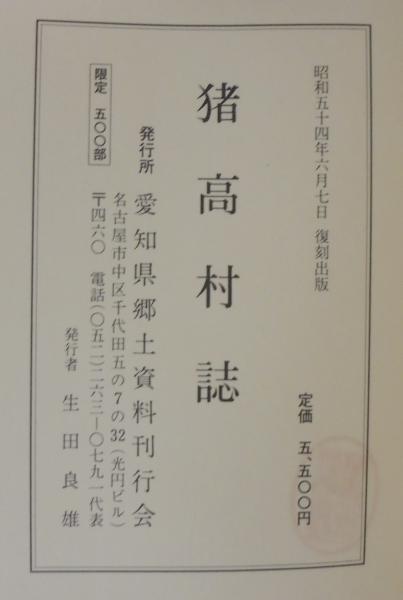 昭和五十四年六月七日 復刻出版
定価 五、五〇〇円
猪高村誌
発行所 愛知県郷土資料刊行会
名古屋市中区千代田五の7の32(光円ビル)
〒四六〇 電話(〇五二)二六三―〇七九一代表
発行者 生田良雄
限定 五〇〇部